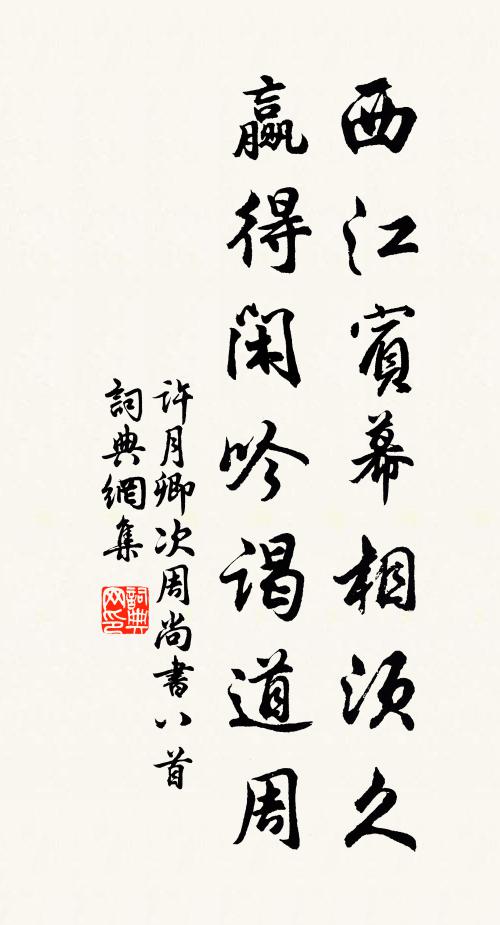 西江賓幕相須久
贏得閑吟謁道周
許月卿次周尚書八首
詞典網集
詞典
网印